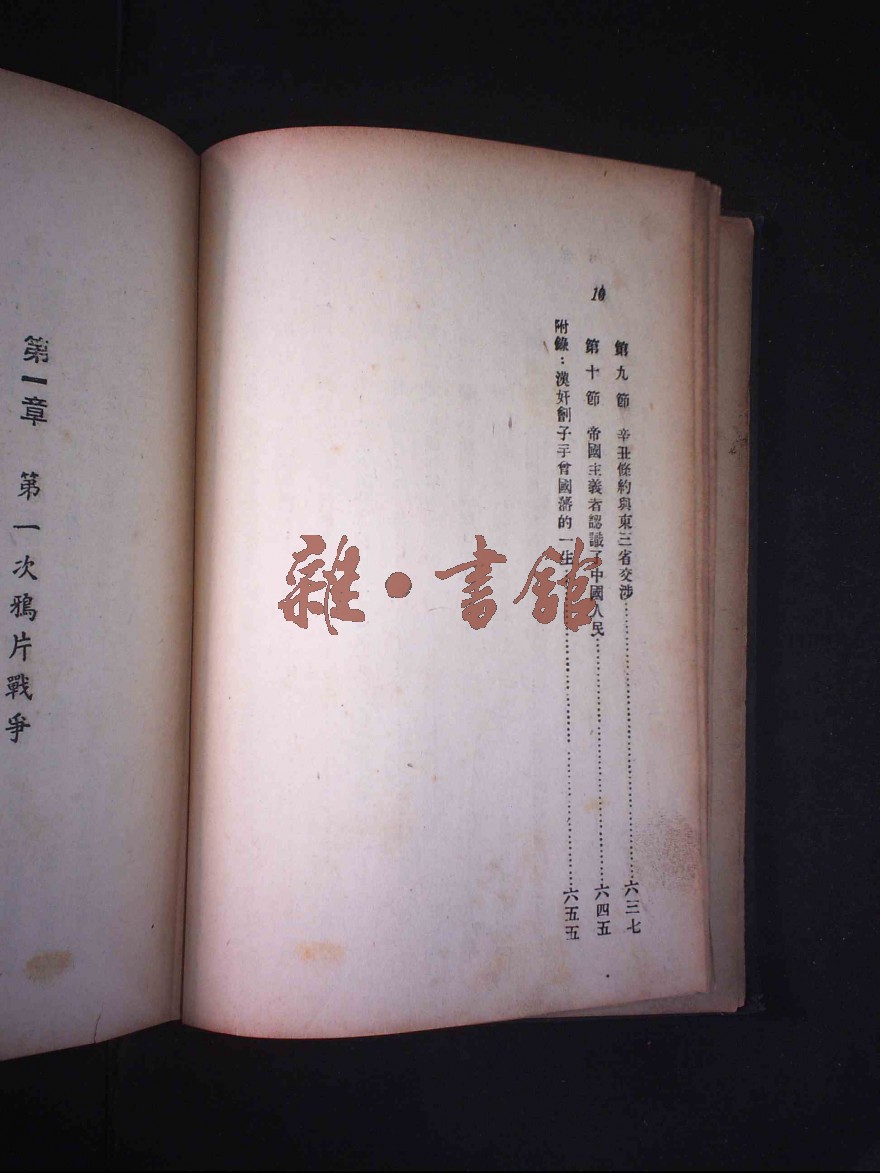 10
第九節 辛丑條約與東三省交涉……六三七
第十節 帝國主義者認識了中國人民……六四五
附錄：漢奸劊子手曾國藩的一生……六五五
第一章 第一次鴉片戰爭
雜·書館